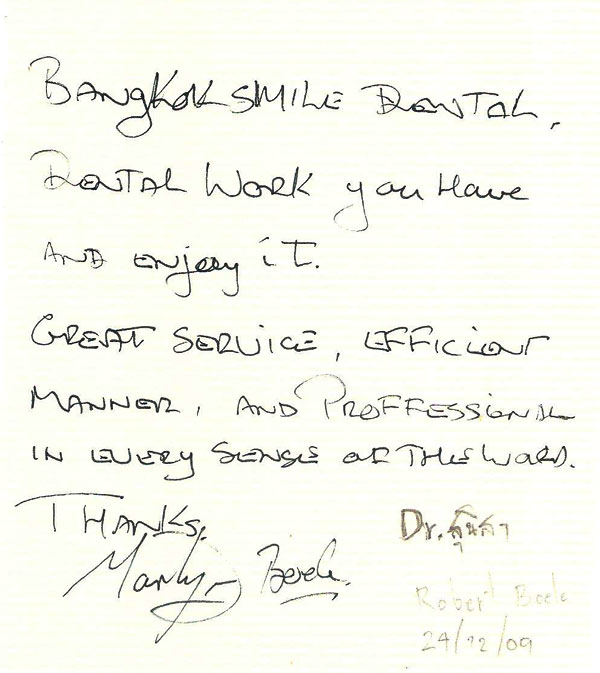 BANGKOK SMILE DENTAL,
DENTAL WORK you Have
AND ENJOY iT.
GREAT SERVICE, EFFICIENT
MANNER, AND PROFFESSiONAL
IN EVERY SENSE OF THE WORD.
THANKS,
Dr.
Robert Beele
24/12/09